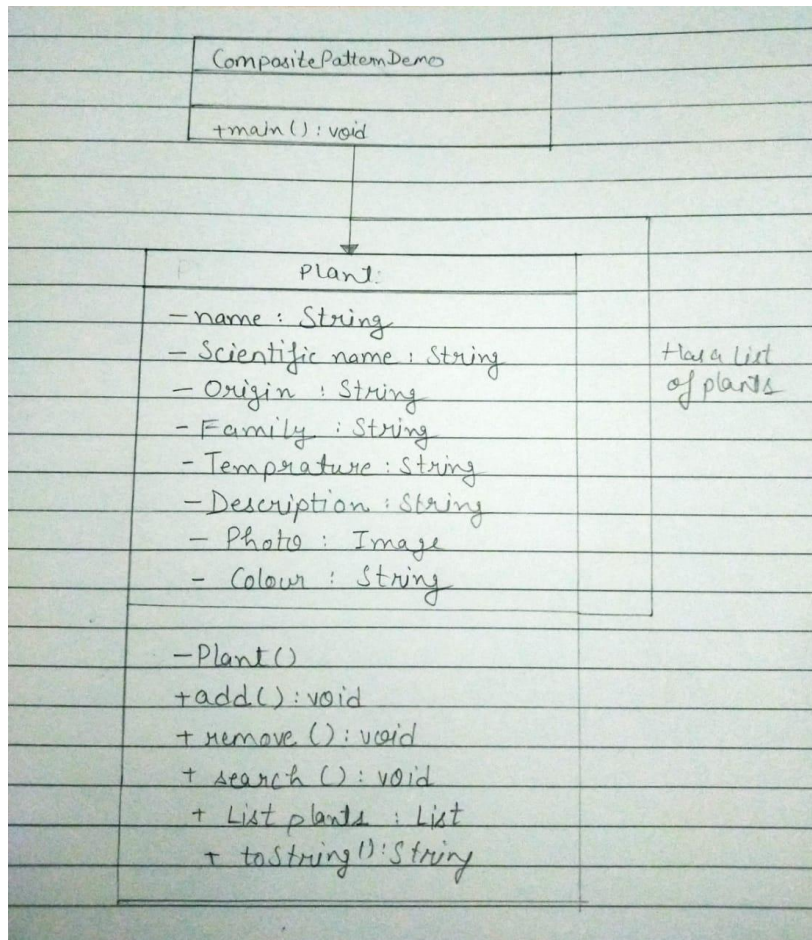 CompositePatternDemo
+main() : void
Plant:
- name : String
- Scientific name : String
- Origin : String
- Family : String
- Temprature : String
- Description : String
- Photo : Image
- Colour : String
Has a list
of plants
- Plant()
+ add() : void
+ remove () : void
+ search () : void
+ List plants : List
+ toString() : String